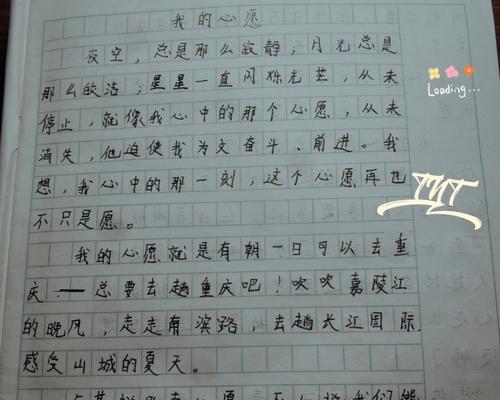 我的心愿
夜空，总是那么寂静；月光总是
那么皎洁；星星一直闪烁光芒，从未
停止，就像我心中的那个心愿，从未
消失，他迫使我为文奋斗、前进。我
想，我心中的那一刻，这个心愿再也
不只是愿。
我的心愿就是有朝一日可以去重
庆——总要去趟重庆吧！吹吹嘉陵江
的晚风，走走南滨路，去趟长江国际，
感受山城的夏天。
Loading...
TNT